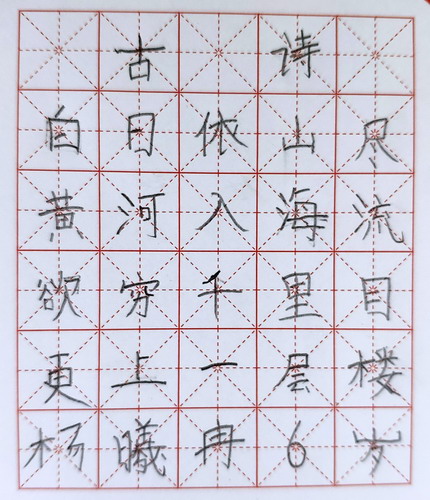 古诗
白日依山尽
黄河入海流
欲穷千里目
更上一层楼
杨曦冉6岁